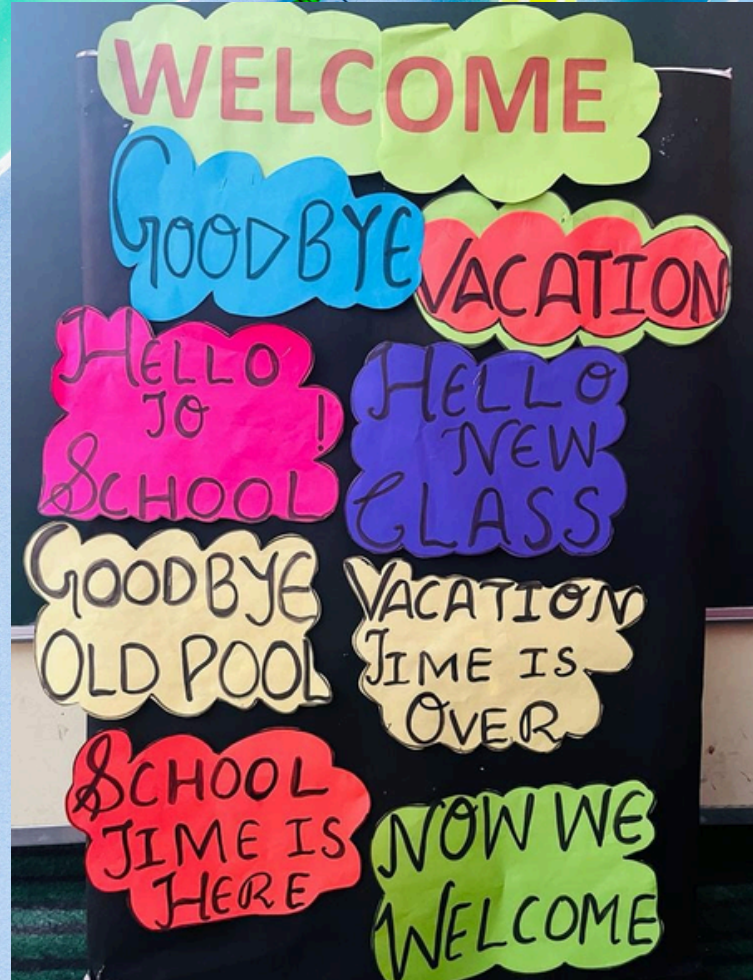 WELCOME
GOODBYE
VACATION
HELLO
TO !
SCHOOL
HELLO
NEW
CLASS
GOODBYE
OLD POOL
VACATION
TIME IS
OVER
SCHOOL
TIME IS
HERE
NOW WE
WELCOME